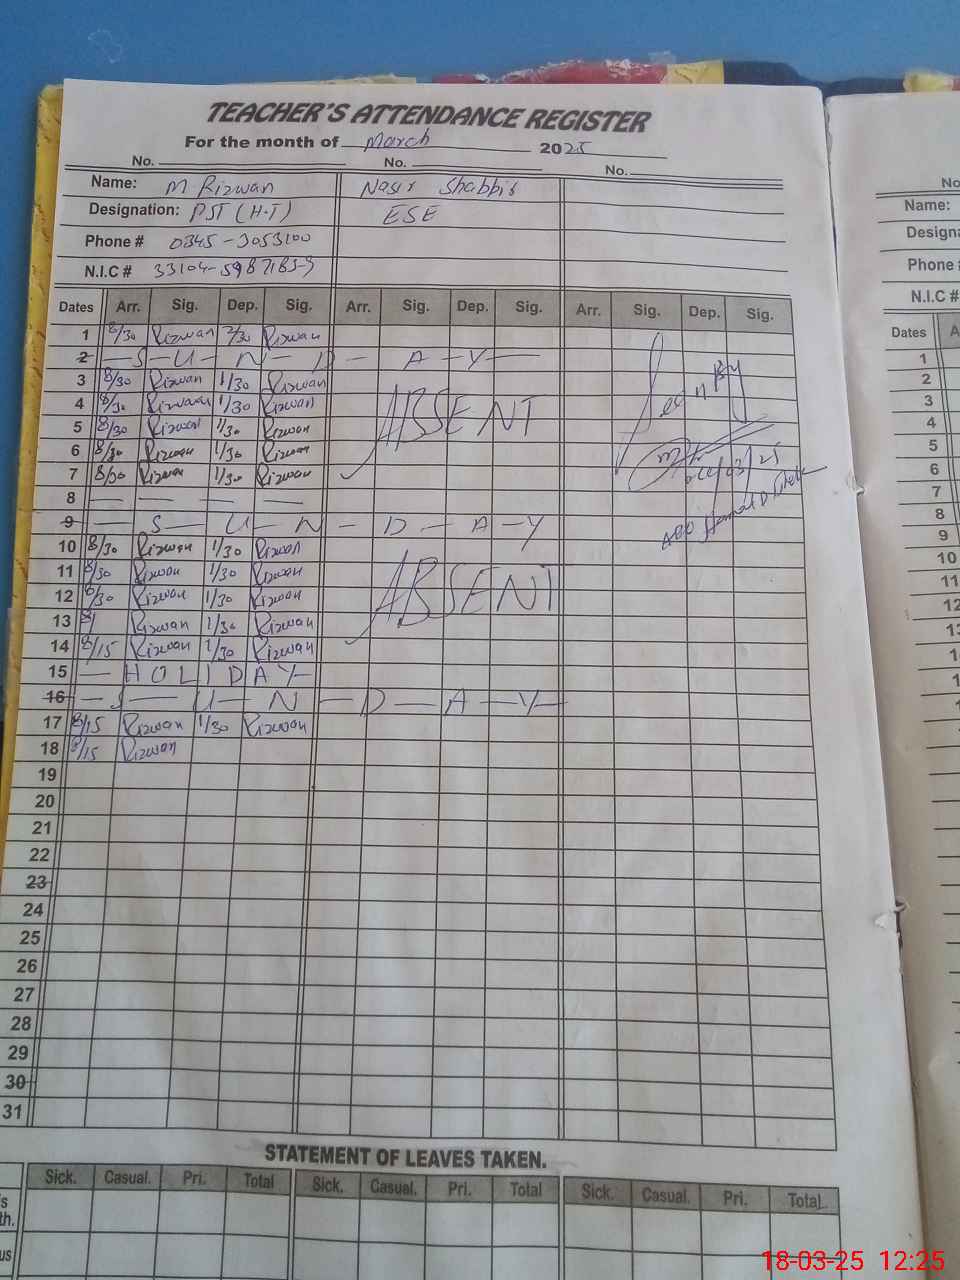 TEACHER'S ATTENDANCE REGISTER
For the month of March 2025
No. No. No.
Name: M Rizwan Nasir Shabbir
Designation: PST (H.T) ESE
Phone # 0345-3053100
N.I.C # 33104-5987183-9
Dates Arr. Sig. Dep. Sig. Arr. Sig. Dep. Sig. Arr. Sig. Dep. Sig.
1 8/30 Rizwan 2/30 Rizwan
2 - S - U - N - D - A - Y -
3 8/30 Rizwan 1/30 Rizwan
4 8/30 Rizwan 1/30 Rizwan ABSENT Seen By
5 8/30 Rizwan 1/30 Rizwan
6 8/30 Rizwan 1/30 Rizwan
7 8/30 Rizwan 1/30 Rizwan /03/25
8 - - - -
9 - S - U - N - D - A - Y
10 8/30 Rizwan 1/30 Rizwan
11 8/30 Rizwan 1/30 Rizwan
12 8/30 Rizwan 1/30 Rizwan ABSENT
13 8/ Rizwan 1/30 Rizwan
14 8/15 Rizwan 1/30 Rizwan
15 - HOLIDAY -
16 - S - U - N - D - A - Y -
17 8/15 Rizwan 1/30 Rizwan
18 8/15 Rizwan
19
20
21
22
23
24
25
26
27
28
29
30
31
STATEMENT OF LEAVES TAKEN.
Sick. Casual. Pri. Total Sick. Casual. Pri. Total Sick. Casual. Pri. Total.
s
th.
us
No
Name:
Designa
Phone #
N.I.C #
Dates A
1
2
3
4
5
6
7
8
9
10
11
12
13
1
15
16
17
18
19
20
21
2
2
18-03-25 12:25